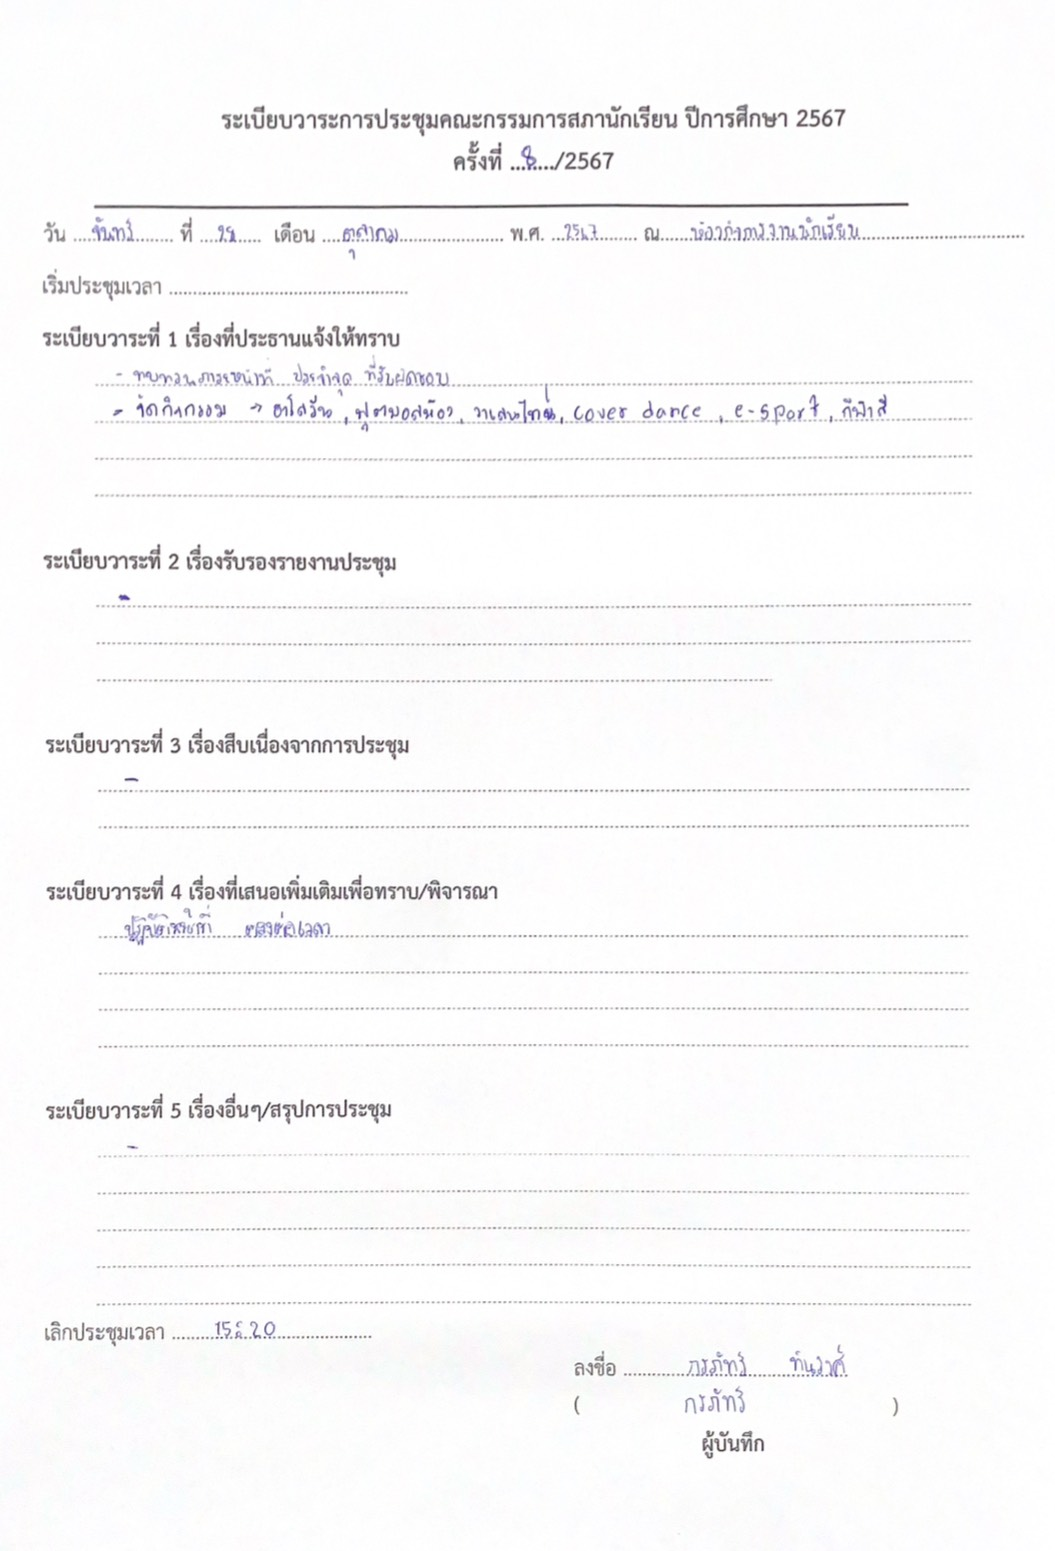 ระเบียบวาระการประชุมคณะกรรมการสภานักเรียน ปีการศึกษา 2567
ครั้งที่ ...8..../2567
วัน ....จันทร์........ ที่ ............ เดือน ....ตุลาคม...................... พ.ศ. ...2567........ ณ......ห้องกิจการงานนักเรียน..................................
เริ่มประชุมเวลา ..................................................
ระเบียบวาระที่ 1 เรื่องที่ประธานแจ้งให้ทราบ
- ทบทวนภาระหน้าที่ ประจำจุด ที่รับผิดชอบ
- จัดกิจกรรม → ฮาโลวีน, ฟุตบอล, วาเลนไทน์, cover dance, e-sport, กีฬาสี
ระเบียบวาระที่ 2 เรื่องรับรองรายงานประชุม
-
ระเบียบวาระที่ 3 เรื่องสืบเนื่องจากการประชุม
-
ระเบียบวาระที่ 4 เรื่องที่เสนอเพิ่มเติมเพื่อทราบ/พิจารณา
ปฏิบัติหน้าที่ ตรงต่อเวลา
ระเบียบวาระที่ 5 เรื่องอื่นๆ/สรุปการประชุม
-
เลิกประชุมเวลา .........15:20....................
ลงชื่อ .............กรภัทร์.........
( กรภัทร์ )
ผู้บันทึก